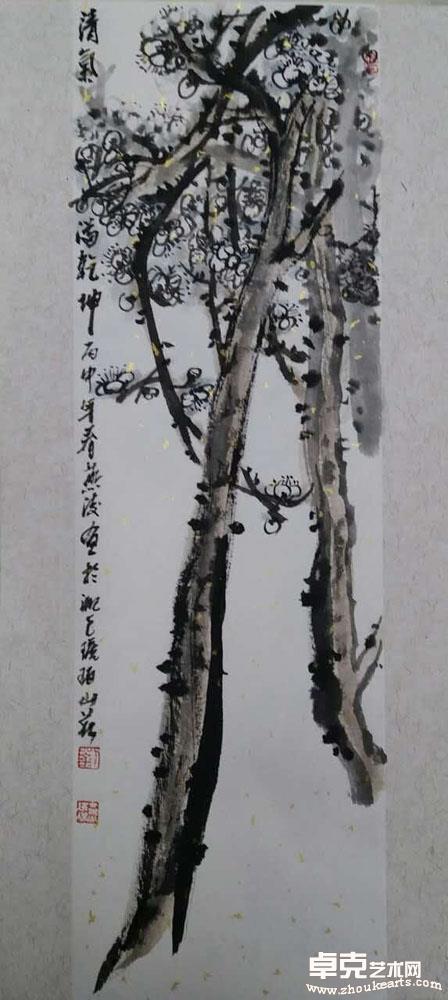 清氣滿乾坤丙申年春燕波画於淝上琥珀山莊
卓克艺术网
www.zhoukearts.com